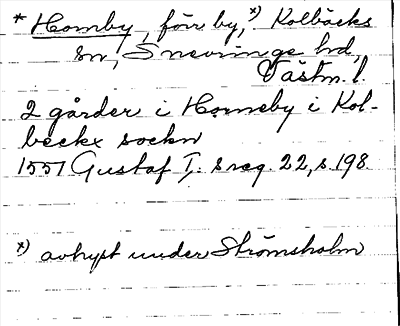 * Horneby, förr by, x) Kolbäcks
sn, Snevringe hd,
Västm. l.
2 gårder i Horneby i Kol-
beckx sockn
1551 Gustaf I:s reg. 22, s. 198.
x) avhyst under Strömsholm